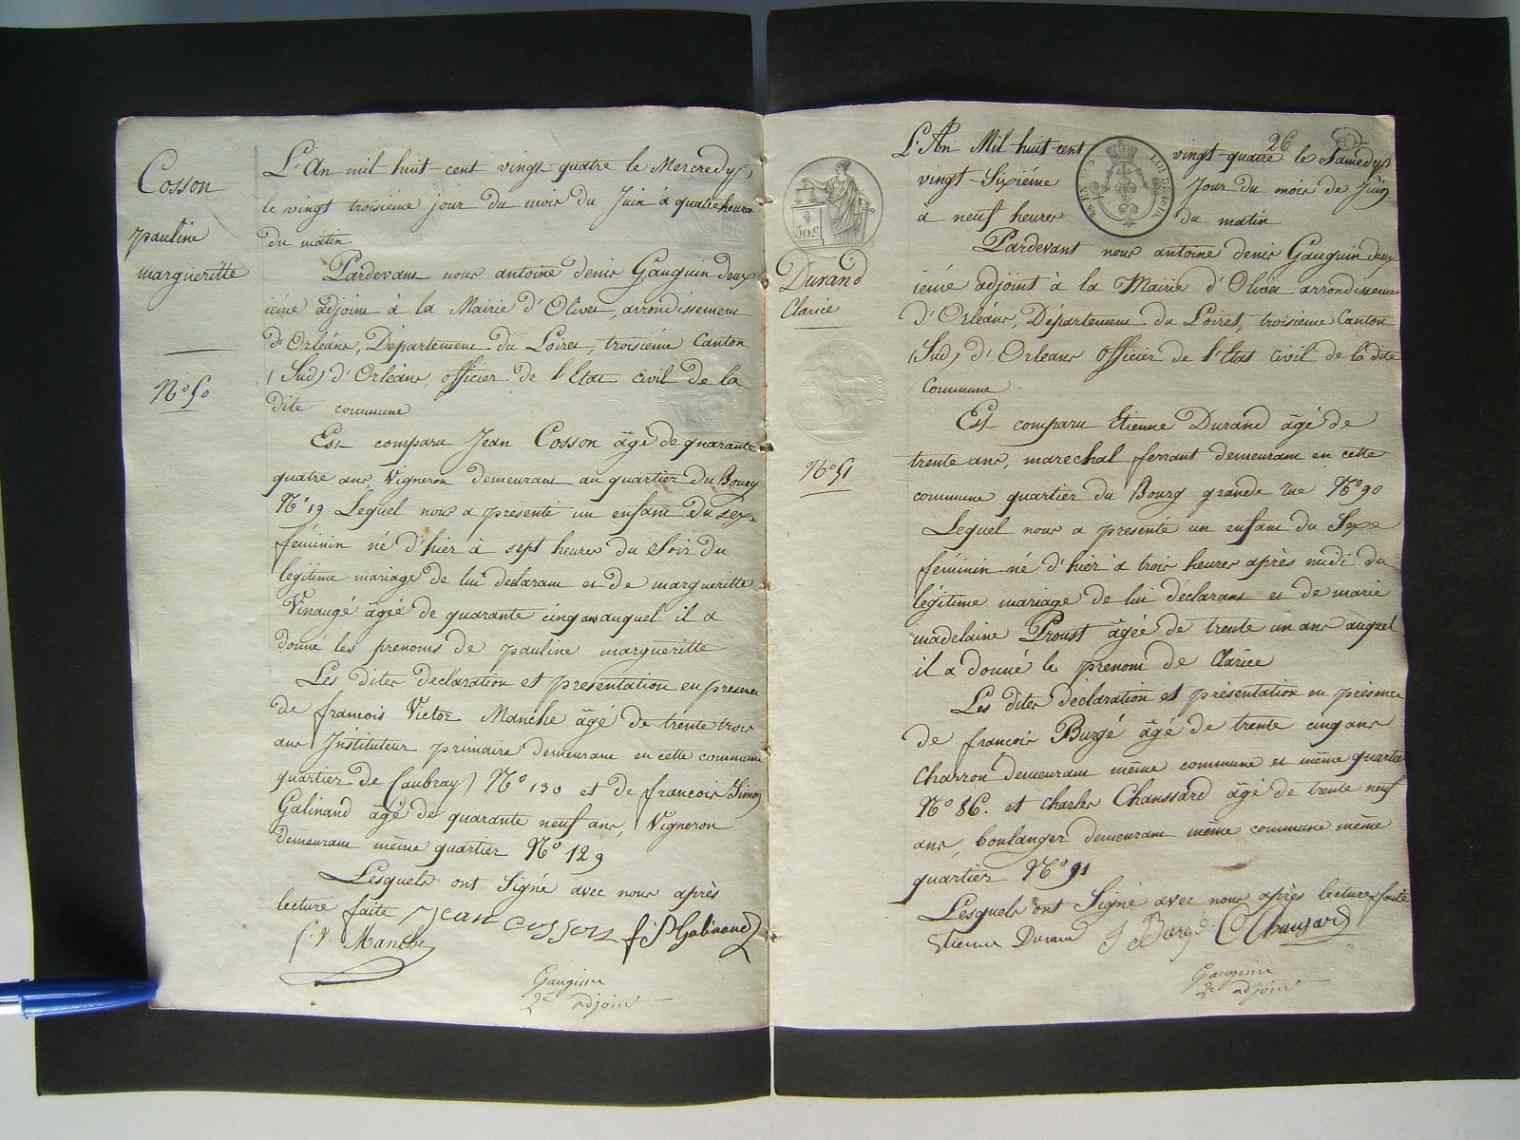 Cosson
pauline
margueritte
N° 50
L'An mil huit cent vingt quatre le Mercredy
le vingt troisieme jour du mois du Juin à quatre heures
du matin
Pardevant nous antoine denis Gauguin deux
ieme adjoint à la Mairie d'Olivet, arrondissement
d'Orléans, Département du Loiret, troisieme Canton
(Sud) d'Orléans, officier de l'Etat civil de la
dite commune
Est comparu Jean Cosson âgé de quarante
quatre ans, Vigneron demeurant au quartier du Bourg
N° 19 Lequel nous a présenté un enfant du sexe
féminin né d'hier à sept heures du Soir du
légitime mariage de lui déclarant et de margueritte
Vinaugé âgée de quarante cinq ans auquel il a
donné les prenoms de pauline margueritte
Les dites déclaration et présentation en présence
de francois Victor Manche âgé de trente trois
ans Instituteur primaire demeurant en cette commune
quartier de Caubray N° 130 et de francois Simon
Galinand âgé de quarante neuf ans, Vigneron
demeurant même quartier N° 129
Lesquels ont Signé avec nous après
lecture faite Jean cosson f S Galinand
f. V. Manche
Gauguin
2e adjoint
26
L'An Mil huit cent vingt-quatre le Samedy
vingt-Sixiéme Jour du mois de Juin
a neuf heures du matin
MAXENTS
LOI
50 C
Durand
Clarice
N° 51
Pardevant nous antoine denis Gauguin deux
ieme adjoint à la Mairie d'Olivet arrondissement
d'Orléans, Département du Loiret, troisieme Canton
(Sud) d'Orléans officier de l'Etat civil de la dite
Commune
Est comparu Etienne Durand âgé de
trente ans, marechal ferrant demeurant en cette
commune quartier du Bourg grande rue N° 90
Lequel nous a présenté un enfant du Sexe
féminin né d'hier à trois heures après midi du
légitime mariage de lui déclarant et de marie
madelaine Proust âgée de trente un ans auquel
il a donné le prenom de Clarice
Les dites déclaration et présentation en présence
de francois Burgé âgé de trente cinq ans
Charron demeurant même commune et même quartier
N° 86. et Charles Chaussard âgé de trente neuf
ans, boulanger demeurant même commune même
quartier N° 91
Lesquels ont Signé avec nous après lecture faite
Etienne Durand f Burgé C Chausard
Gauguin
2e adjoint